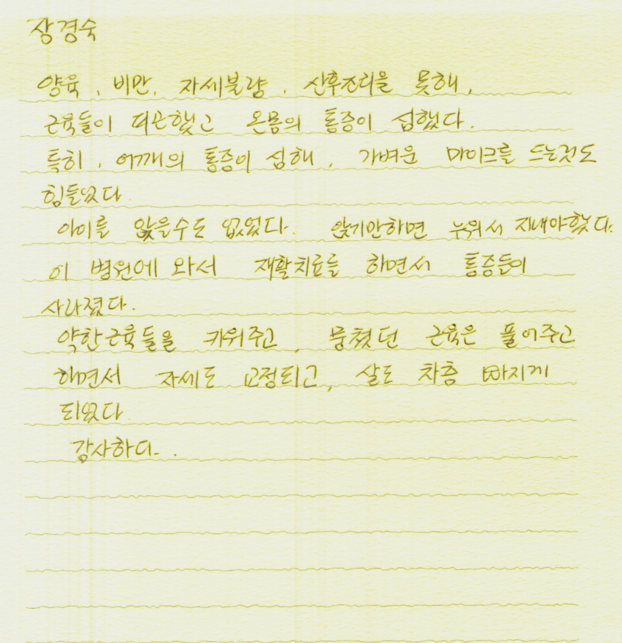 장경숙
양육, 비만, 자세불량, 산후조리을 못해,
근육들이 피곤했고 온몸의 통증이 심했다.
특히, 어깨의 통증이 심해, 가벼운 마이크를 드는것도
힘들었다
아이를 앉을수도 없었다. 앉기만하면 누워서 지내야했다.
이 병원에 와서 재활치료를 하면서 통증들이
사라졌다.
약한근육들을 키워주고, 뭉쳤던 근육은 풀어주고
하면서 자세도 교정되고, 살도 차츰 빠지게
되었다
감사하다.